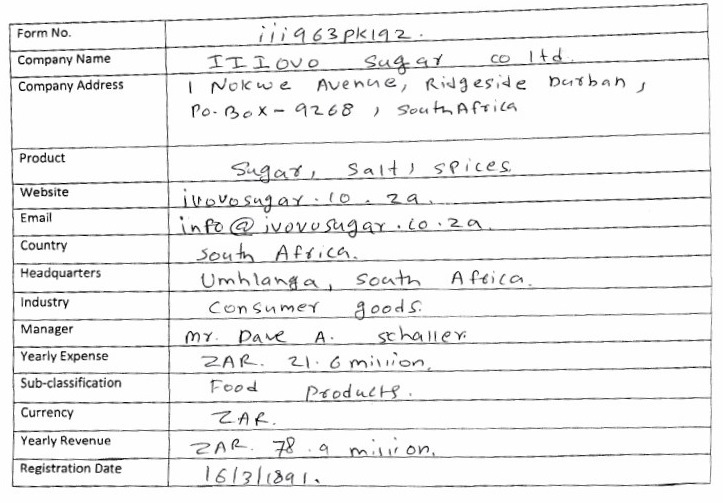 Form No. iii963pk192.
Company Name IIIovo sugar co ltd.
Company Address 1 Nokwe Avenue, Ridgeside Durban,
Po. Box - 9268, South Africa
Product Sugar, Salt, spices.
Website ivovosugar.co.za.
Email info@ivovosugar.co.za.
Country South Africa.
Headquarters Umhlanga, South Africa.
Industry Consumer goods.
Manager Mr. Dave A. Schaller.
Yearly Expense ZAR. 21.6 million.
Sub-classification Food Products.
Currency ZAR.
Yearly Revenue ZAR. 78.9 million.
Registration Date 16/3/1891.